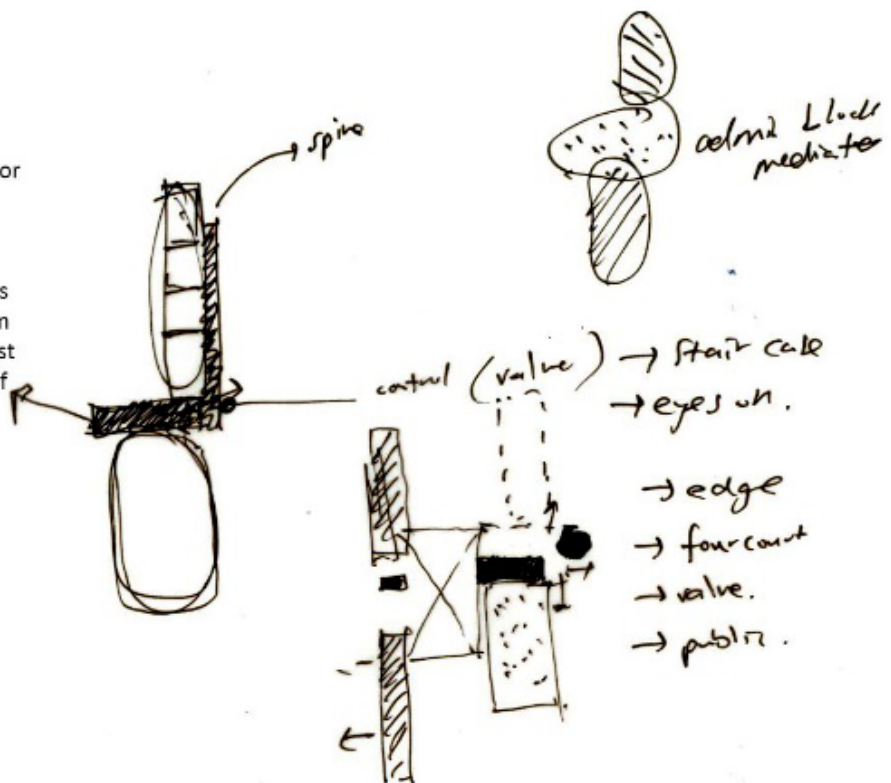 or
s
n
st
f
spine
mediator
control (valve) → stair case
→ eyes on.
→ edge
→ fourcourt
→ valve.
→ public.